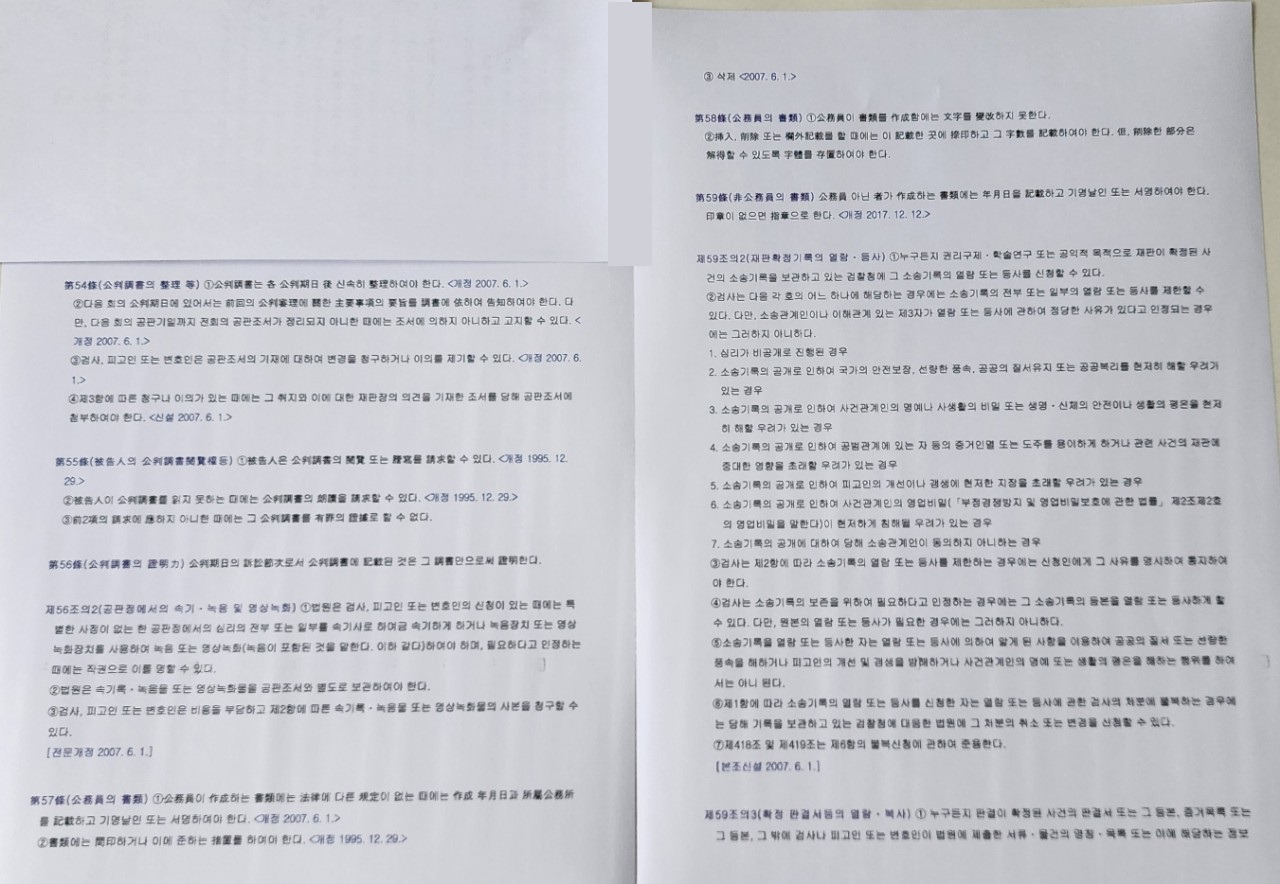 第54條(公判調書의 整理 等) ①公判調書는 各 公判期日 後 신속히 整理하여야 한다. <개정 2007. 6. 1.>
②다음 회의 公判期日에 있어서는 前回의 公判審理에 關한 主要事項의 要旨를 調書에 依하여 告知하여야 한다. 다
만, 다음 회의 공판기일까지 전회의 공판조서가 정리되지 아니한 때에는 조서에 의하지 아니하고 고지할 수 있다. <
개정 2007. 6. 1.>
③검사, 피고인 또는 변호인은 공판조서의 기재에 대하여 변경을 청구하거나 이의를 제기할 수 있다. <개정 2007. 6.
1.>
④제3항에 따른 청구나 이의가 있는 때에는 그 취지와 이에 대한 재판장의 의견을 기재한 조서를 당해 공판조서에
첨부하여야 한다. <신설 2007. 6. 1.>
第55條(被告人의 公判調書閱覽權등) ①被告人은 公判調書의 閱覽 또는 謄寫를 請求할 수 있다. <개정 1995. 12.
29.>
②被告人이 公判調書를 읽지 못하는 때에는 公判調書의 朗讀을 請求할 수 있다. <개정 1995. 12. 29.>
③前2項의 請求에 應하지 아니한 때에는 그 公判調書를 有罪의 證據로 할 수 없다.
第56條(公判調書의 證明力) 公判期日의 訴訟節次로서 公判調書에 記載된 것은 그 調書만으로써 證明한다.
제56조의2(공판정에서의 속기ㆍ녹음 및 영상녹화) ①법원은 검사, 피고인 또는 변호인의 신청이 있는 때에는 특
별한 사정이 없는 한 공판정에서의 심리의 전부 또는 일부를 속기사로 하여금 속기하게 하거나 녹음장치 또는 영상
녹화장치를 사용하여 녹음 또는 영상녹화(녹음이 포함된 것을 말한다. 이하 같다)하여야 하며, 필요하다고 인정하는
때에는 직권으로 이를 명할 수 있다.
②법원은 속기록ㆍ녹음물 또는 영상녹화물을 공판조서와 별도로 보관하여야 한다.
③검사, 피고인 또는 변호인은 비용을 부담하고 제2항에 따른 속기록ㆍ녹음물 또는 영상녹화물의 사본을 청구할 수
있다.
[전문개정 2007. 6. 1.]
第57條(公務員의 書類) ①公務員이 作成하는 書類에는 法律에 다른 規定이 없는 때에는 作成 年月日과 所屬公務所
를 記載하고 기명날인 또는 서명하여야 한다. <개정 2007. 6. 1.>
②書類에는 間印하거나 이에 준하는 措置를 하여야 한다. <개정 1995. 12. 29.>
③ 삭제 <2007. 6. 1.>
第58條(公務員의 書類) ①公務員이 書類를 作成함에는 文字를 變改하지 못한다.
②挿入, 削除 또는 欄外記載를 할 때에는 이 記載한 곳에 捺印하고 그 字數를 記載하여야 한다. 但, 削除한 部分은
解得할 수 있도록 字體를 存置하여야 한다.
第59條(非公務員의 書類) 公務員 아닌 者가 作成하는 書類에는 年月日을 記載하고 기명날인 또는 서명하여야 한다.
印章이 없으면 指章으로 한다. <개정 2017. 12. 12.>
제59조의2(재판확정기록의 열람ㆍ등사) ①누구든지 권리구제ㆍ학술연구 또는 공익적 목적으로 재판이 확정된 사
건의 소송기록을 보관하고 있는 검찰청에 그 소송기록의 열람 또는 등사를 신청할 수 있다.
②검사는 다음 각 호의 어느 하나에 해당하는 경우에는 소송기록의 전부 또는 일부의 열람 또는 등사를 제한할 수
있다. 다만, 소송관계인이나 이해관계 있는 제3자가 열람 또는 등사에 관하여 정당한 사유가 있다고 인정되는 경우
에는 그러하지 아니하다.
1. 심리가 비공개로 진행된 경우
2. 소송기록의 공개로 인하여 국가의 안전보장, 선량한 풍속, 공공의 질서유지 또는 공공복리를 현저히 해할 우려가
있는 경우
3. 소송기록의 공개로 인하여 사건관계인의 명예나 사생활의 비밀 또는 생명ㆍ신체의 안전이나 생활의 평온을 현저
히 해할 우려가 있는 경우
4. 소송기록의 공개로 인하여 공범관계에 있는 자 등의 증거인멸 또는 도주를 용이하게 하거나 관련 사건의 재판에
중대한 영향을 초래할 우려가 있는 경우
5. 소송기록의 공개로 인하여 피고인의 개선이나 갱생에 현저한 지장을 초래할 우려가 있는 경우
6. 소송기록의 공개로 인하여 사건관계인의 영업비밀(「부정경쟁방지 및 영업비밀보호에 관한 법률」 제2조제2호
의 영업비밀을 말한다)이 현저하게 침해될 우려가 있는 경우
7. 소송기록의 공개에 대하여 당해 소송관계인이 동의하지 아니하는 경우
③검사는 제2항에 따라 소송기록의 열람 또는 등사를 제한하는 경우에는 신청인에게 그 사유를 명시하여 통지하여
야 한다.
④검사는 소송기록의 보존을 위하여 필요하다고 인정하는 경우에는 그 소송기록의 등본을 열람 또는 등사하게 할
수 있다. 다만, 원본의 열람 또는 등사가 필요한 경우에는 그러하지 아니하다.
⑤소송기록을 열람 또는 등사한 자는 열람 또는 등사에 의하여 알게 된 사항을 이용하여 공공의 질서 또는 선량한
풍속을 해하거나 피고인의 개선 및 갱생을 방해하거나 사건관계인의 명예 또는 생활의 평온을 해하는 행위를 하여
서는 아니 된다.
⑥제1항에 따라 소송기록의 열람 또는 등사를 신청한 자는 열람 또는 등사에 관한 검사의 처분에 불복하는 경우에
는 당해 기록을 보관하고 있는 검찰청에 대응한 법원에 그 처분의 취소 또는 변경을 신청할 수 있다.
⑦제418조 및 제419조는 제6항의 불복신청에 관하여 준용한다.
[본조신설 2007. 6. 1.]
제59조의3(확정 판결서등의 열람ㆍ복사) ① 누구든지 판결이 확정된 사건의 판결서 또는 그 등본, 증거목록 또는
그 등본, 그 밖에 검사나 피고인 또는 변호인이 법원에 제출한 서류ㆍ물건의 명칭ㆍ목록 또는 이에 해당하는 정보